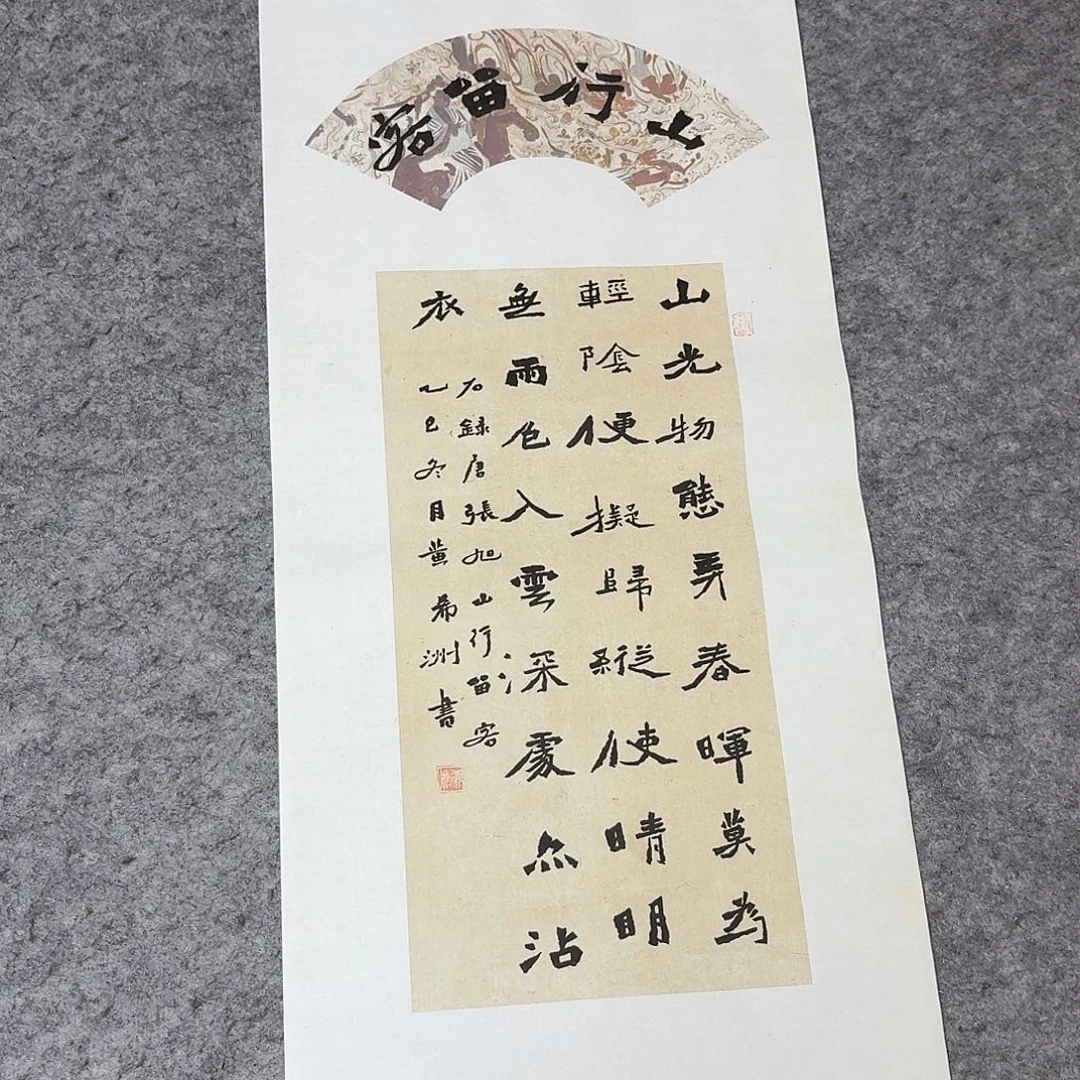 山行留客
山光物態弄春暉莫為
輕陰便擬歸縱使晴明
無雨色入雲深處亦沾
衣
右錄唐張旭山行留客
乙巳冬月黃希洲書